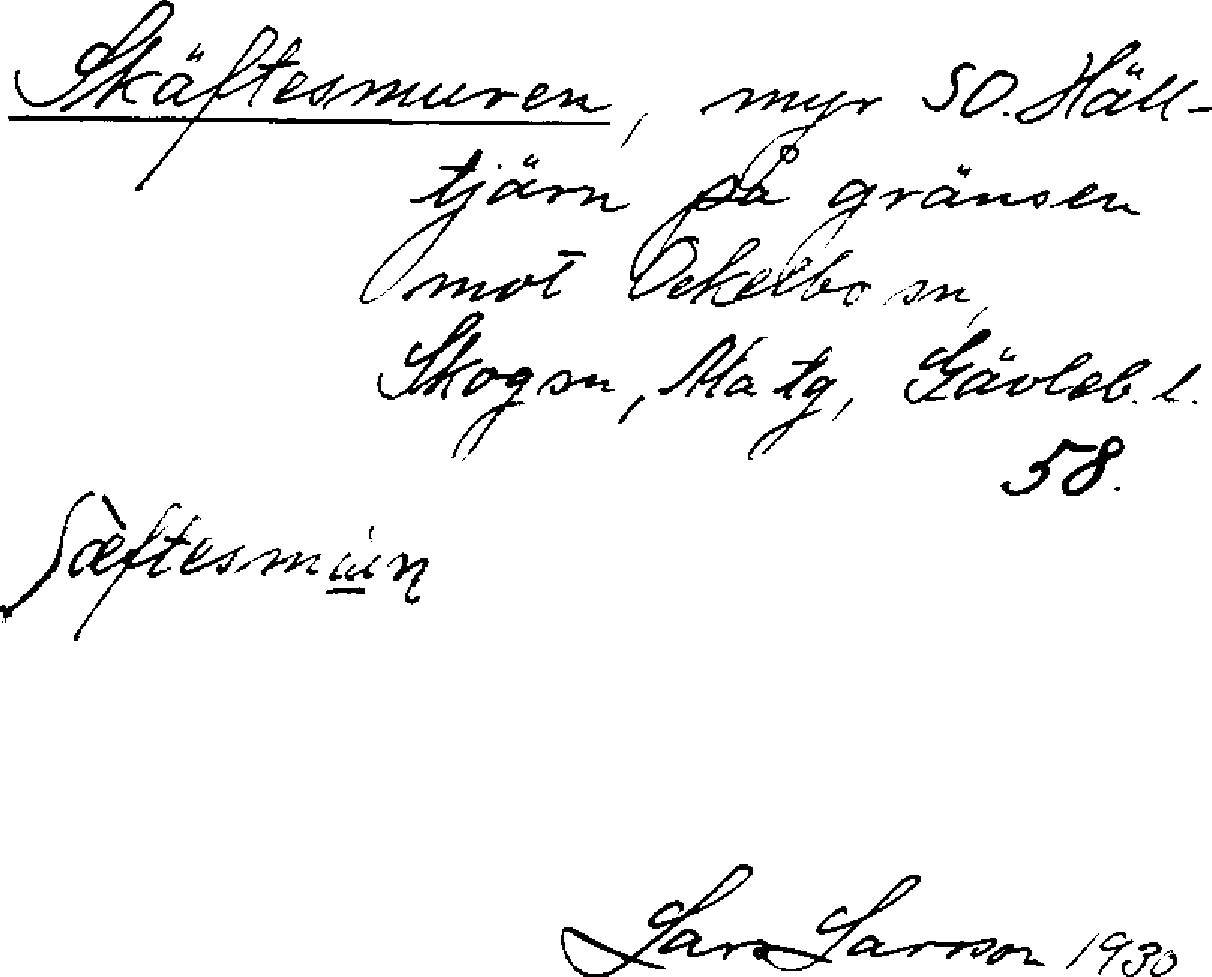 Skäftesmuren, myr SO. Häll-
tjärn på gränsen
mot Ockelbo sn,
Skog sn, Ala tg, Gävleb. l.
58.
Lars Larsson 1930